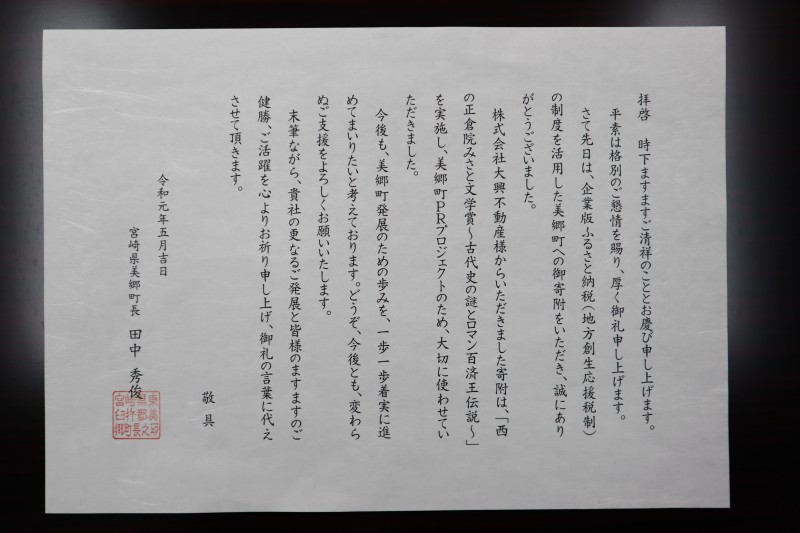 拝啓　時下ますますご清祥のこととお慶び申し上げます。
平素は格別のご懇情を賜り、厚く御礼申し上げます。
さて先日は、企業版ふるさと納税（地方創生応援税制）
の制度を活用した美郷町への御寄附をいただき、誠にあり
がとうございました。
株式会社大興不動産様からいただきました寄附は、「西
の正倉院みさと文学賞～古代史の謎とロマン百済王伝説～」
を実施し、美郷町ＰＲプロジェクトのため、大切に使わせてい
ただきました。
今後も、美郷町発展のための歩みを、一歩一歩着実に進
めてまいりたいと考えております。どうぞ、今後とも、変わら
ぬご支援をよろしくお願いいたします。
末筆ながら、貴社の更なるご発展と皆様のますますのご
健勝、ご活躍を心よりお祈り申し上げ、御礼の言葉に代え
させて頂きます。
敬具
令和元年五月吉日
宮崎県美郷町長　田中　秀俊